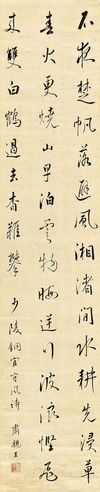 不夜楚帆落避風湘渚間水耕先浸草
春火更燒山早泊雲物晦逆行波浪慳飛
来雙白鶴過去杳難攀 少陵銅官守風詩 肅親王